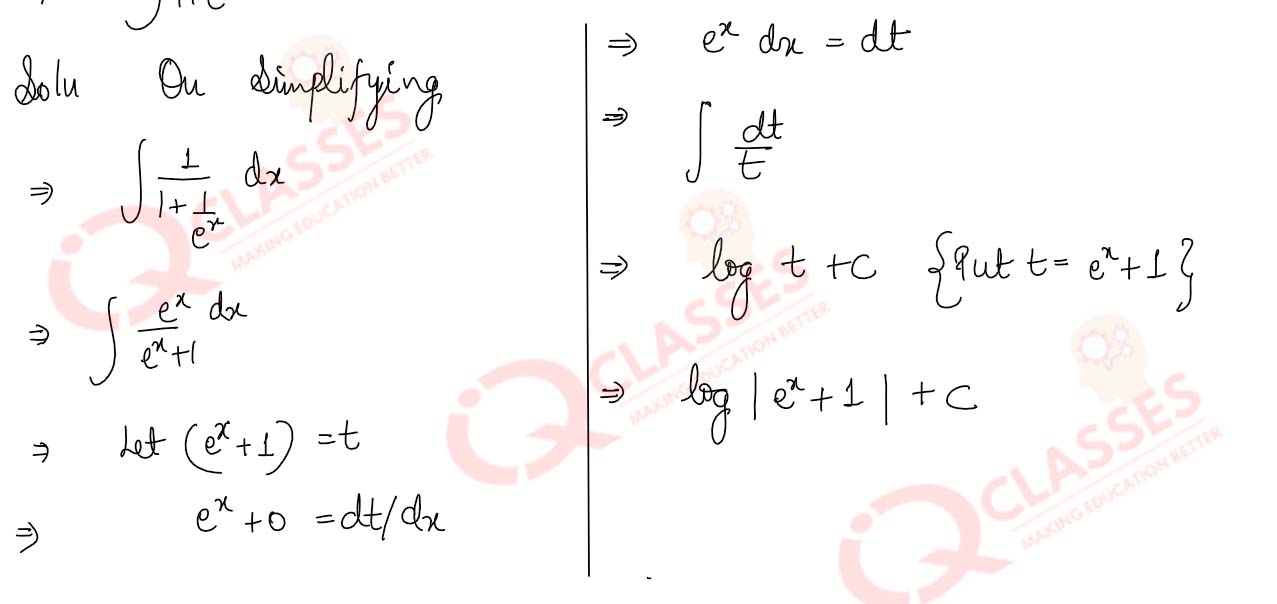 Solu On Simplifying
⇒ ∫ 1/(1 + 1/eˣ) dx
⇒ ∫ eˣ dx/(eˣ+1)
⇒ Let (eˣ+1) = t
⇒ eˣ + 0 = dt/dx
⇒ eˣ dx = dt
⇒ ∫ dt/t
⇒ log t + c {Put t = eˣ+1}
⇒ log |eˣ+1| + c
IQ CLASSES
MAKING EDUCATION BETTER
IQ CLASSES
MAKING EDUCATION BETTER
IQ CLASSES
MAKING EDUCATION BETTER